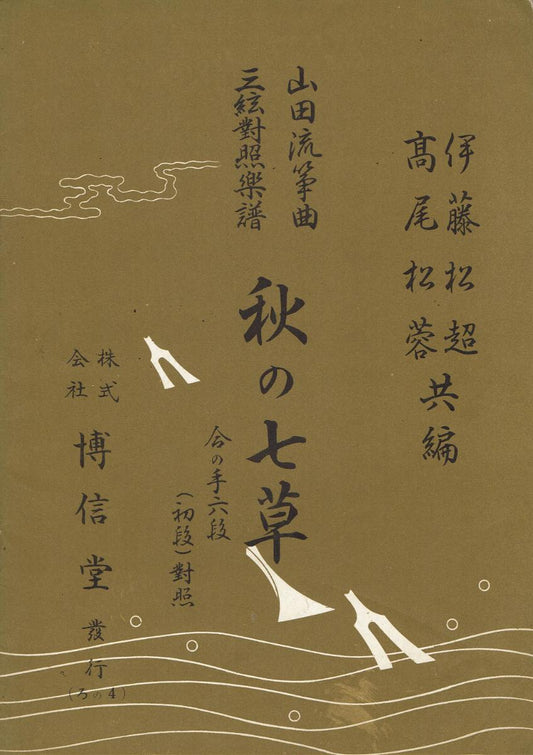 伊藤松超
髙尾松蓉
共編
山田流箏曲
三絃對照樂譜
秋の七草
合の手六段
（初段）對照
株式
会社
博信堂
發行
（ろの4）